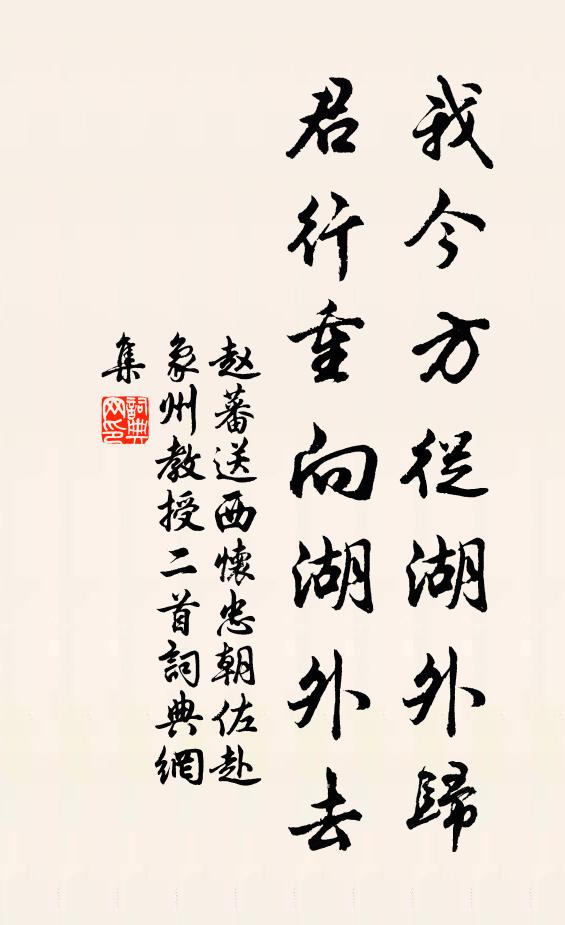 我今方從湖外歸
君行重向湖外去
赵蕃送西懷忠朝佐赴
象州教授二首詞典網
集
詞典
网印